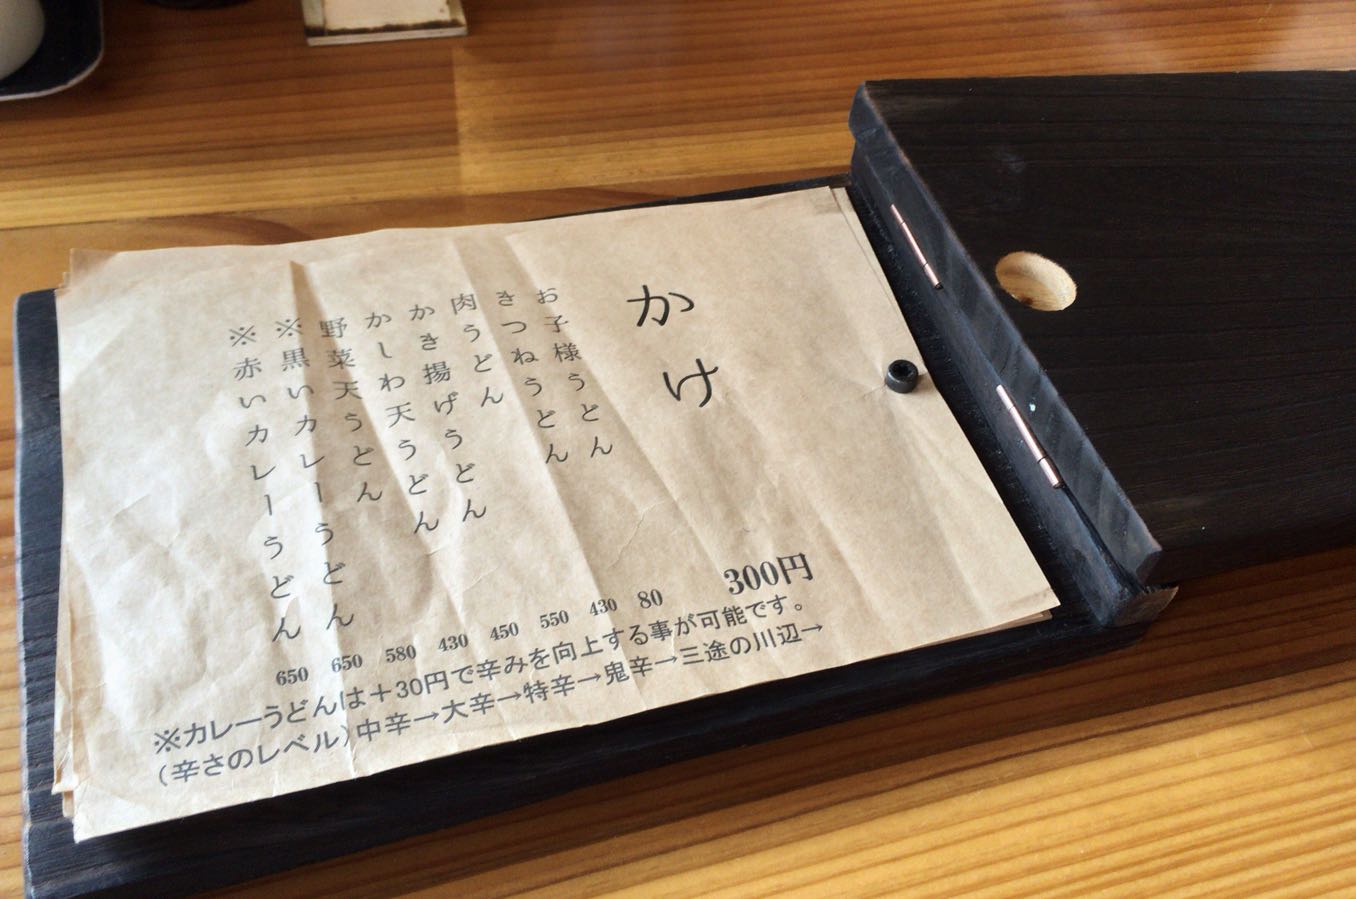 かけ 300円
お子様うどん 80
きつねうどん 430
肉うどん 550
かき揚げうどん 450
かしわ天うどん 430
野菜天うどん 580
※黒いカレーうどん 650
※赤いカレーうどん 650
※カレーうどんは＋30円で辛みを向上する事が可能です。
（辛さのレベル）中辛→大辛→特辛→鬼辛→三途の川辺→